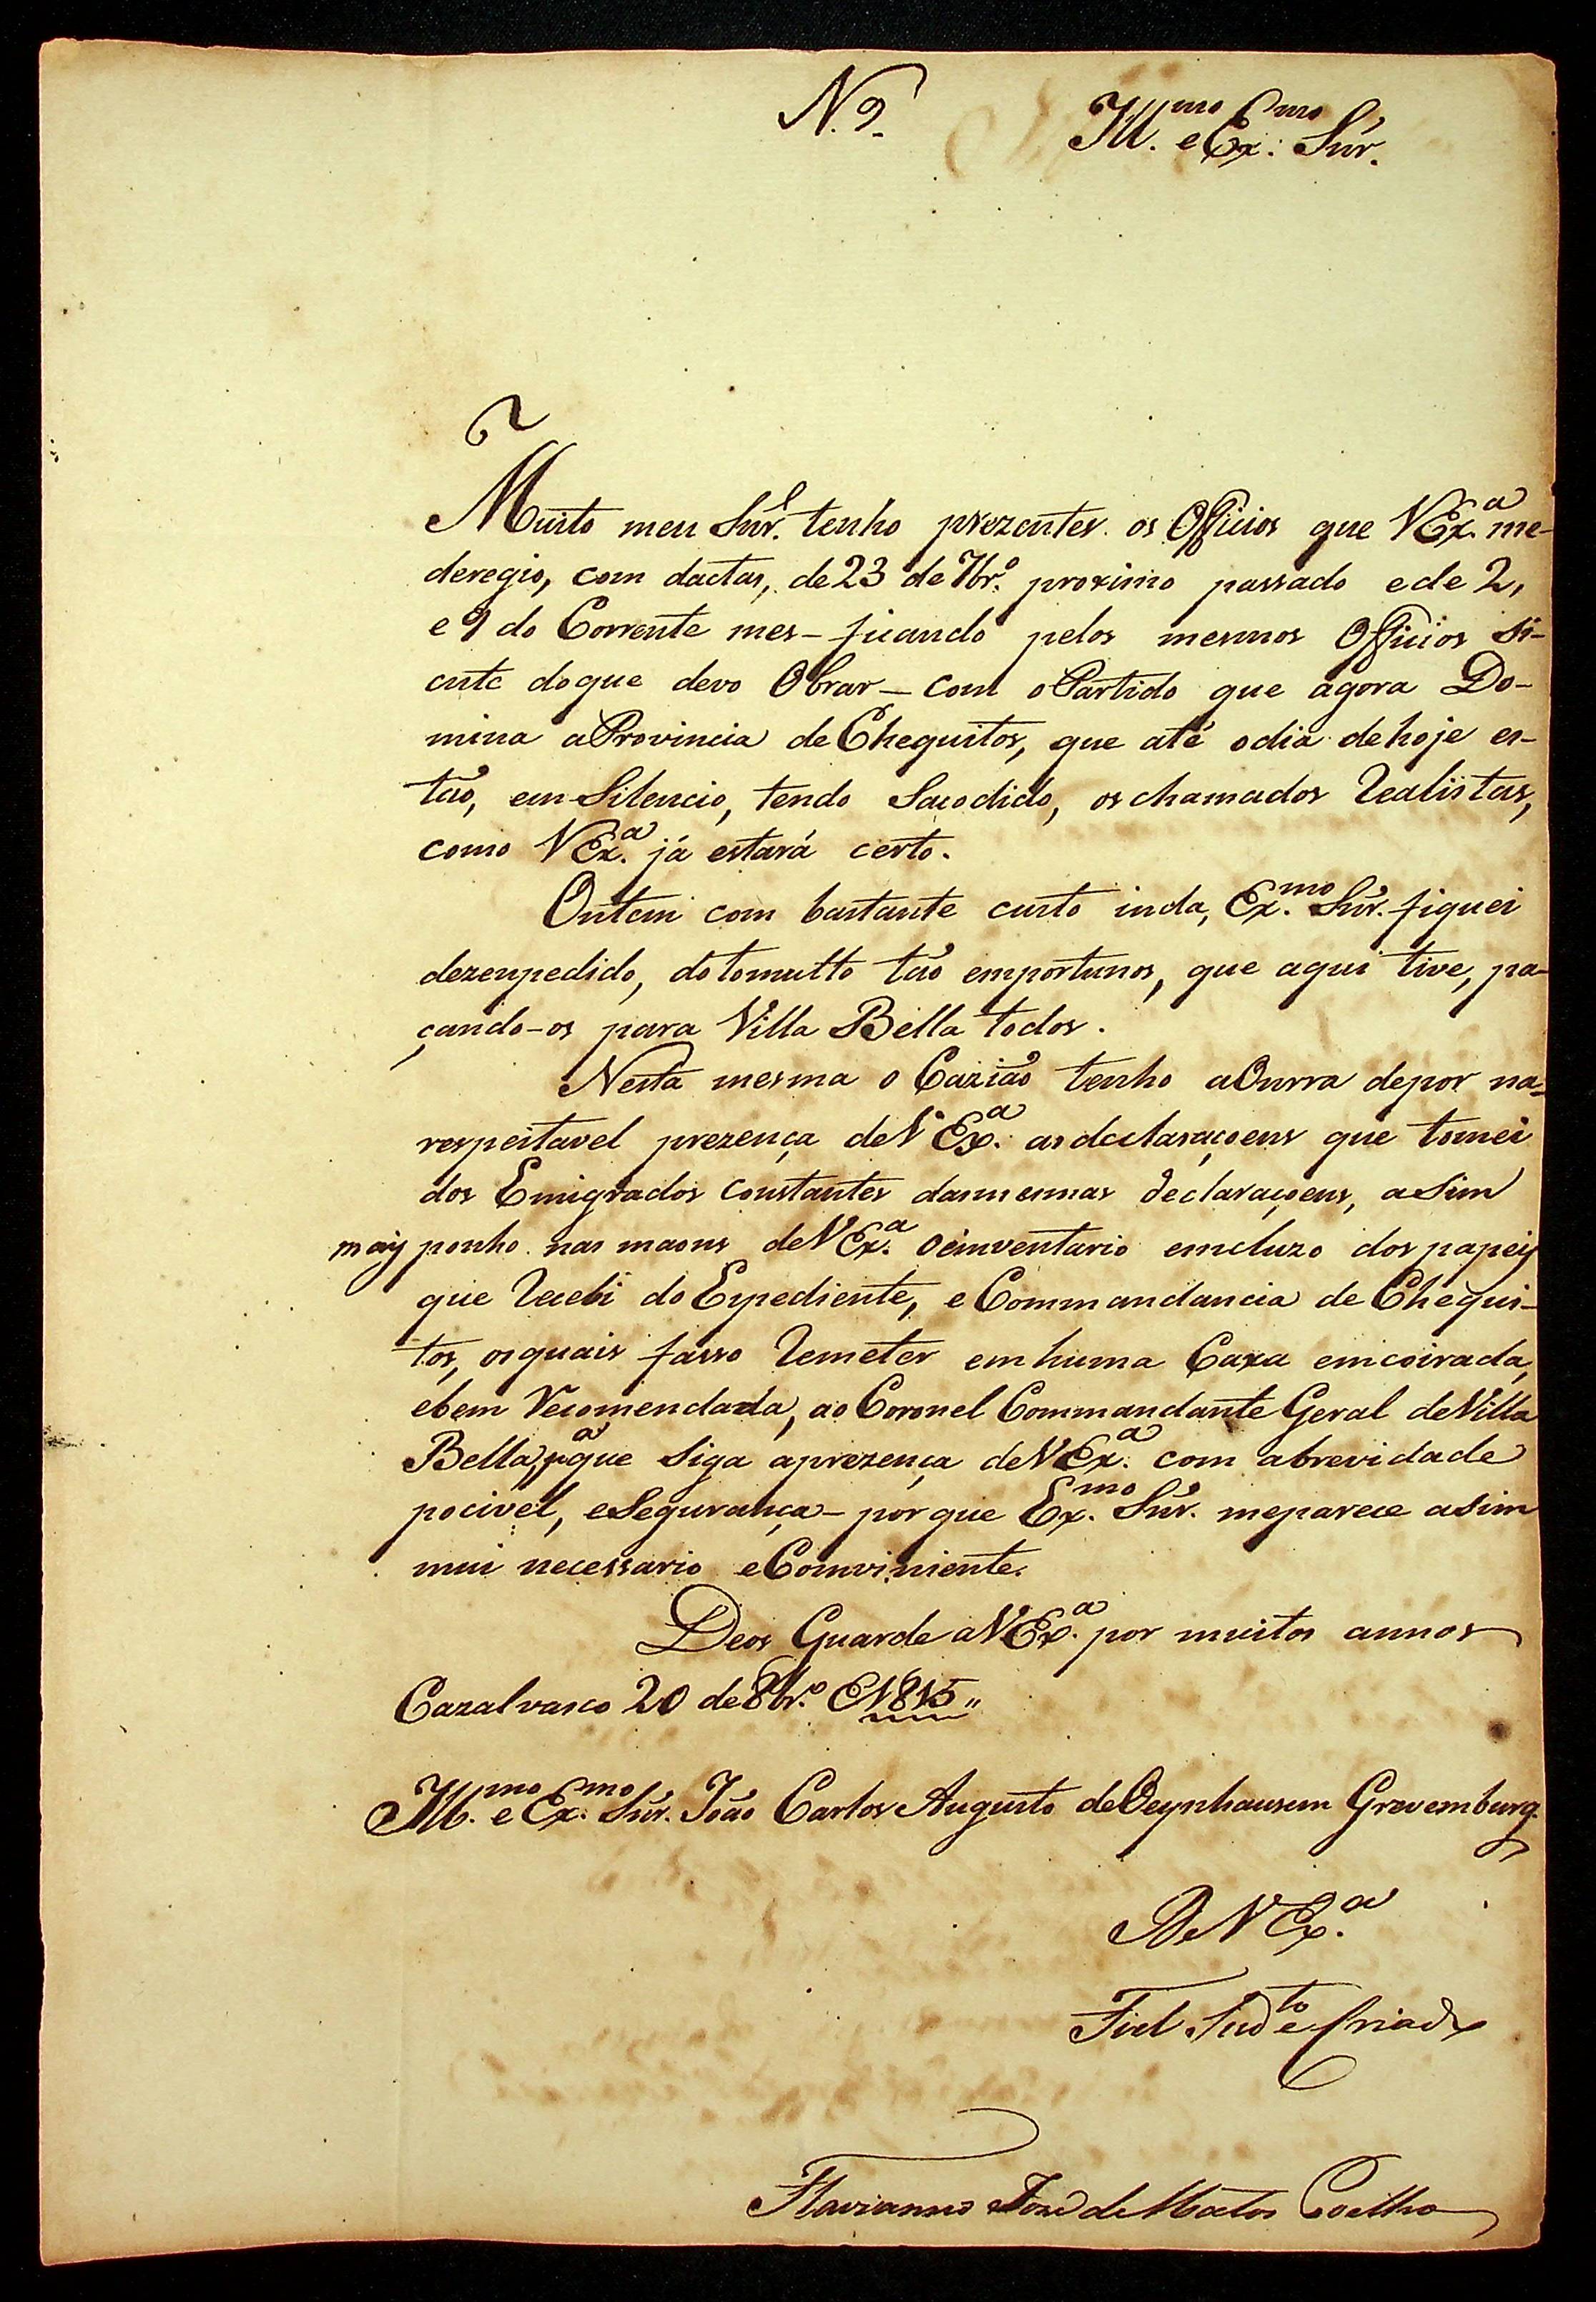 N. 9.
Ill.mo e Ex.mo Snr.
Muito meu Snr. tenho prezentes os Officios que VEx.a me-
deregio, com dactas, de 23 de 7br.o proximo passado e de 2,
e 9 do Corrente mes - ficando pelos mesmos Officios si-
ente do que devo Obrar - com o Partido que agora Do-
mina a Provincia de Chequitos, que até o dia de hoje es-
tão, em Silencio, tendo Sacodido, os chamados Realistas,
como VEx.a já estará certo.
Ontem com bastante custo inda, Ex.mo Snr. fiquei
dezenpedido, do tomulto tão emportunos, que aqui tive, pa-
çando-os para Villa Bella todos.
Nesta mesma o Cazião tenho a Onrra de por na-
respeitavel prezença de VEx.a as declaraçoens que tomei
dos Emigrados constantes das mesmas declaraçoens, a Sim
mais ponho nas maons de VEx.a o einventario emcluzo dos papeis
que Recebi do Expediente, e Commandancia de Chequi-
tos, os quais fasso Remeter em huma Caxa emcoirada,
e bem Recomendada, ao Coronel Commandante Geral de Villa
Bella, p.a que Siga a prezença de VEx.a com a brevidade
pocivel, e Segurança - por que Ex.mo Snr. me parece a Sim
mui necessario e Comviniente.
Deos Guarde a VEx.a por muitos annos
Cazalvasco 20 de 8br.o E 1815,,
Ill.mo e Ex.mo Snr. João Carlos Augusto de Oeynhausem Grevemburg.
De VEx.a
Fiel Sud.to e Criado
Flavianno Jozé de Mattos Coelho